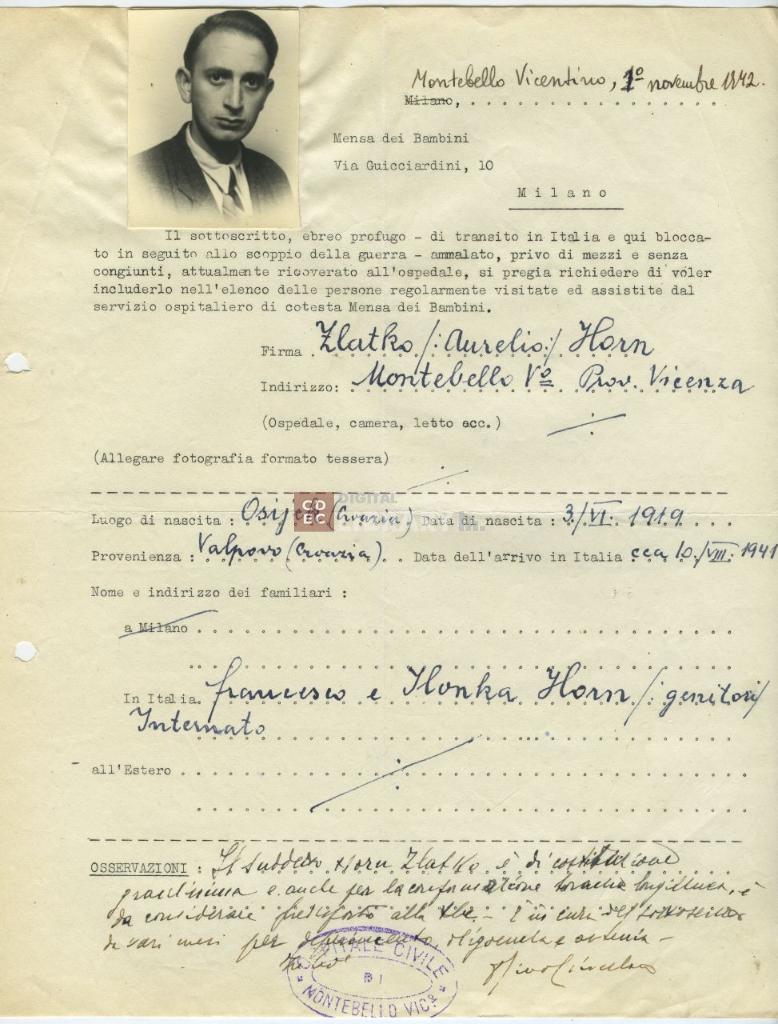 Montebello Vicentino, 1º novembre 1942.
Milano, . . . . . . . . . . . . . . . .
Mensa dei Bambini
Via Guicciardini, 10
Milano
Il sottoscritto, ebreo profugo - di transito in Italia e qui blocca-
to in seguito allo scoppio della guerra - ammalato, privo di mezzi e senza
congiunti, attualmente ricoverato all'ospedale, si pregia richiedere di voler
includerlo nell'elenco delle persone regolarmente visitate ed assistite dal
servizio ospitaliero di cotesta Mensa dei Bambini.
Firma Zlatko /:Aurelio:/ Horn
Indirizzo: Montebello Vº Prov. Vicenza
(Ospedale, camera, letto ecc.)
(Allegare fotografia formato tessera)
CDEC DIGITAL
Luogo di nascita : Osijek (Croazia) Data di nascita : 3/VI. 1919
Provenienza : Valpovo (Croazia) . . Data dell'arrivo in Italia cca 10./VIII. 1941
Nome e indirizzo dei familiari :
a Milano
In Italia. Francesco e Ilonka Horn /: genitori/
Internato
all'Estero
OSSERVAZIONI : Il suddetto Horn Zlatko è di costituzione
gracilissima e anche per la conformazione toracica è
da considerare alla tbc. - È in cura del sottoscritto
da vari mesi per oligoemia e astenia -
OSPITALE CIVILE
DI
MONTEBELLO VICº